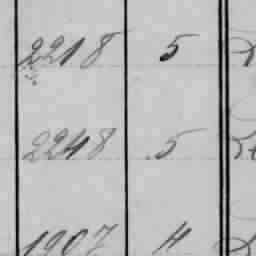 2218 5
2248 5
1907 4